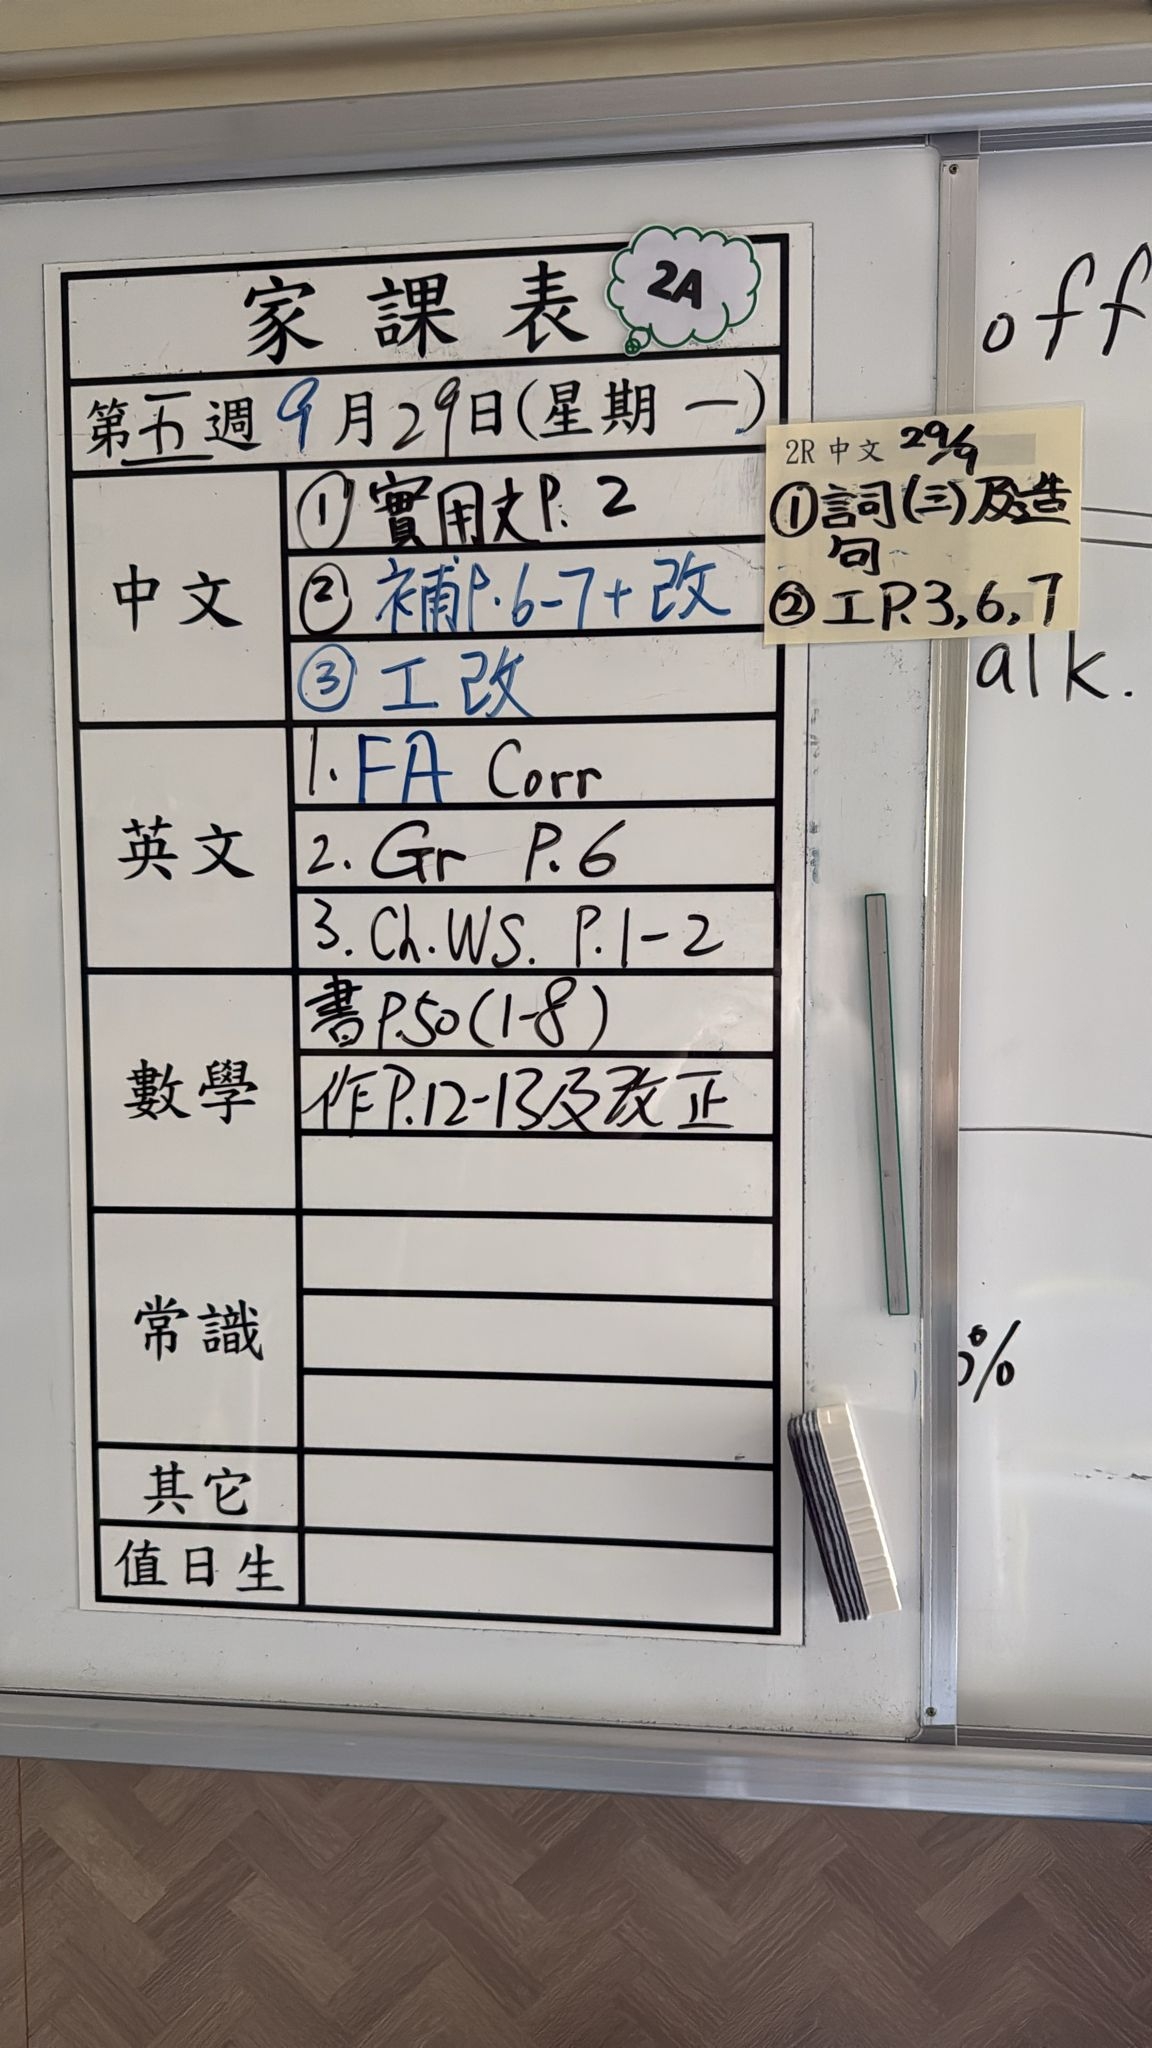 家課表 2A
第五週9月29日(星期一)
中文
① 實用文P.2
② 補P.6-7+改
③ 工改
英文
1. FA Corr
2. Gr P.6
3. Ch.WS. P.1-2
數學
書P.50(1-8)
作P.12-13及改正
常識
其它
值日生
2R 中文 29/9
①詞(三)及造
句
②工P.3,6,7
off
alk.
%